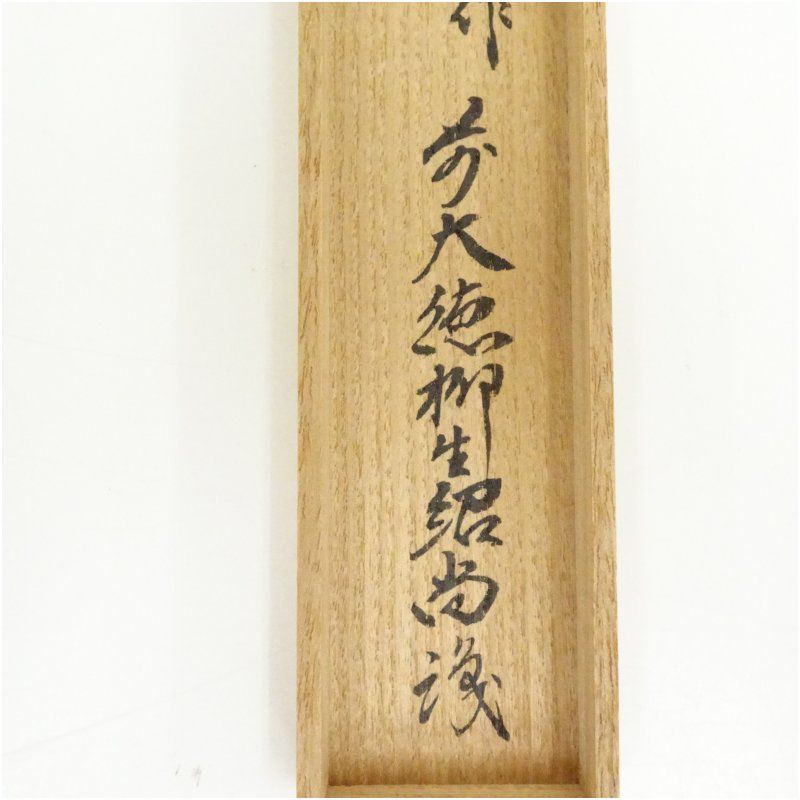 作 前大徳柳生紹尚識